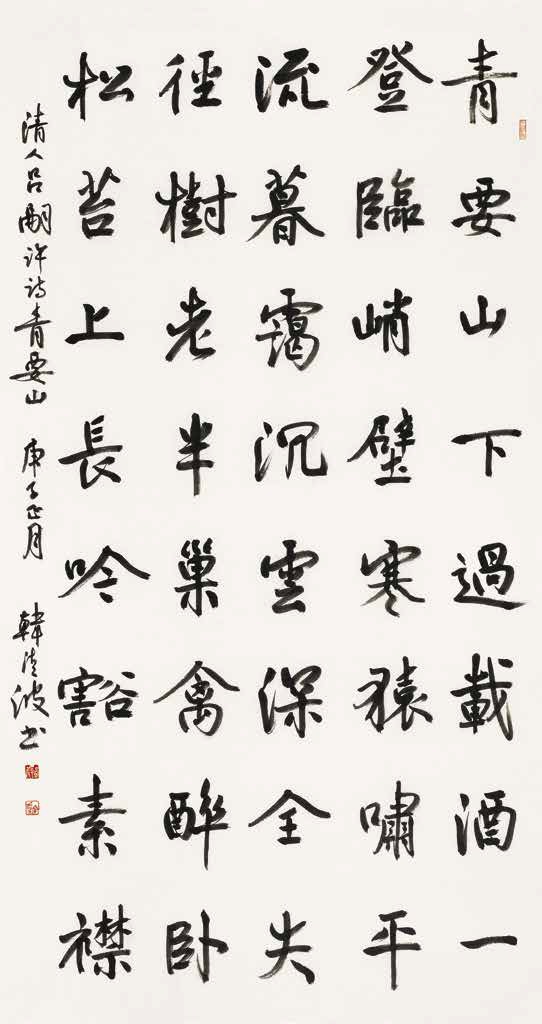 青要山下過載酒一
登臨峭壁寒猿嘯平
流暮靄沉雲深全失
徑樹老半巢禽醉卧
松苔上長吟豁素襟
清人呂嗣許詩青要山 庚子正月 韓清波书